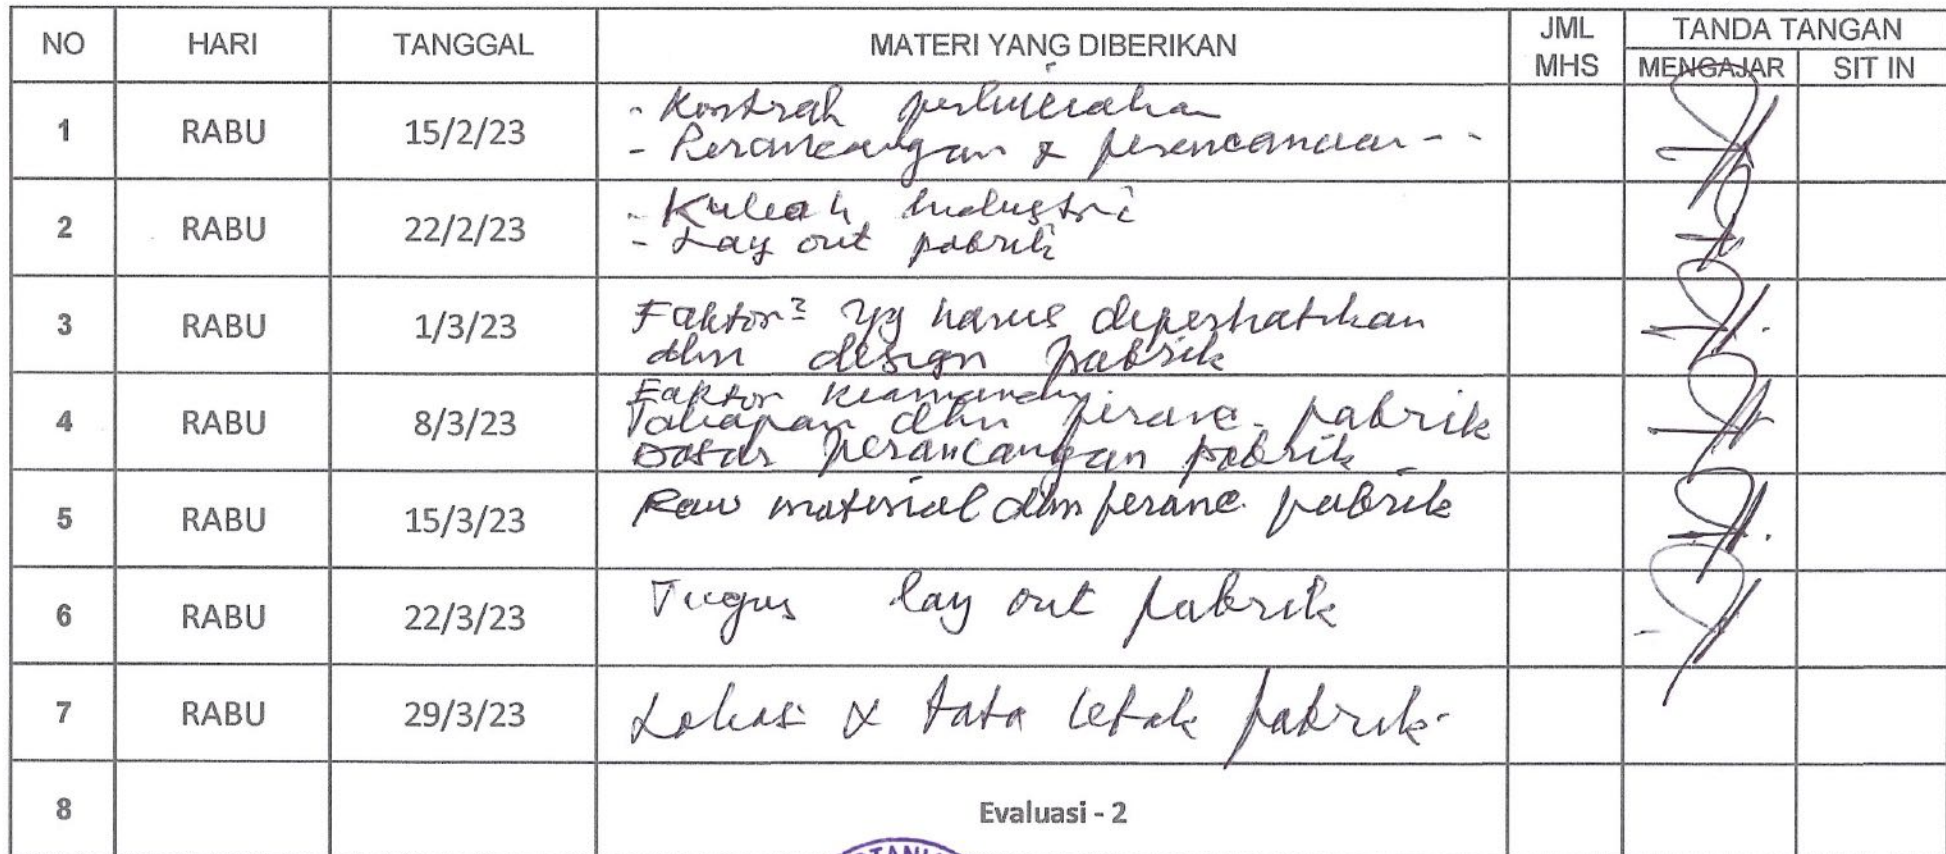 NO HARI TANGGAL MATERI YANG DIBERIKAN JML MHS TANDA TANGAN
MENGAJAR SIT IN
1 RABU 15/2/23 - Kontrak perkuliahan
- Perancangan & perencanaan - -
2 RABU 22/2/23 - Kuliah industri
- Lay out pabrik
3 RABU 1/3/23 Faktor² yg harus diperhatikan
dlm design pabrik
4 RABU 8/3/23 Faktor
Tahapan dlm peranc. pabrik
Dasar perancangan pabrik
5 RABU 15/3/23 Raw material dlm peranc. pabrik
6 RABU 22/3/23 Tugas lay out pabrik
7 RABU 29/3/23 Lokasi & tata letak pabrik
8 Evaluasi - 2